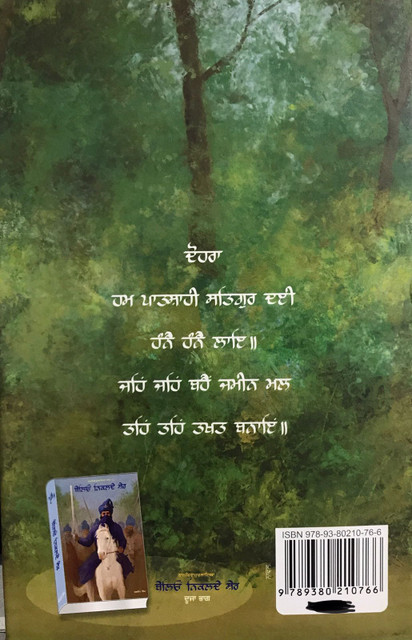 ਦੋਹਰਾ
ਹਮ ਪਾਤਸਾਹੀ ਸਤਿਗੁਰ ਦਈ
ਹੰਨੈ ਹੰਨੈ ਲਾਇ॥
ਜਹਿੰ ਜਹਿੰ ਬਹੈਂ ਜਮੀਨ ਮਲ
ਤਹਿੰ ਤਹਿੰ ਤਖਤ ਬਨਾਇਂ॥
ਨਿਕਲਦੇ ਸ਼ੇਰ
ਨਿਕਲਦੇ ਸ਼ੇਰ
ਦੂਜਾ ਭਾਗ
ISBN 978-93-80210-76-6
9 789380 210766